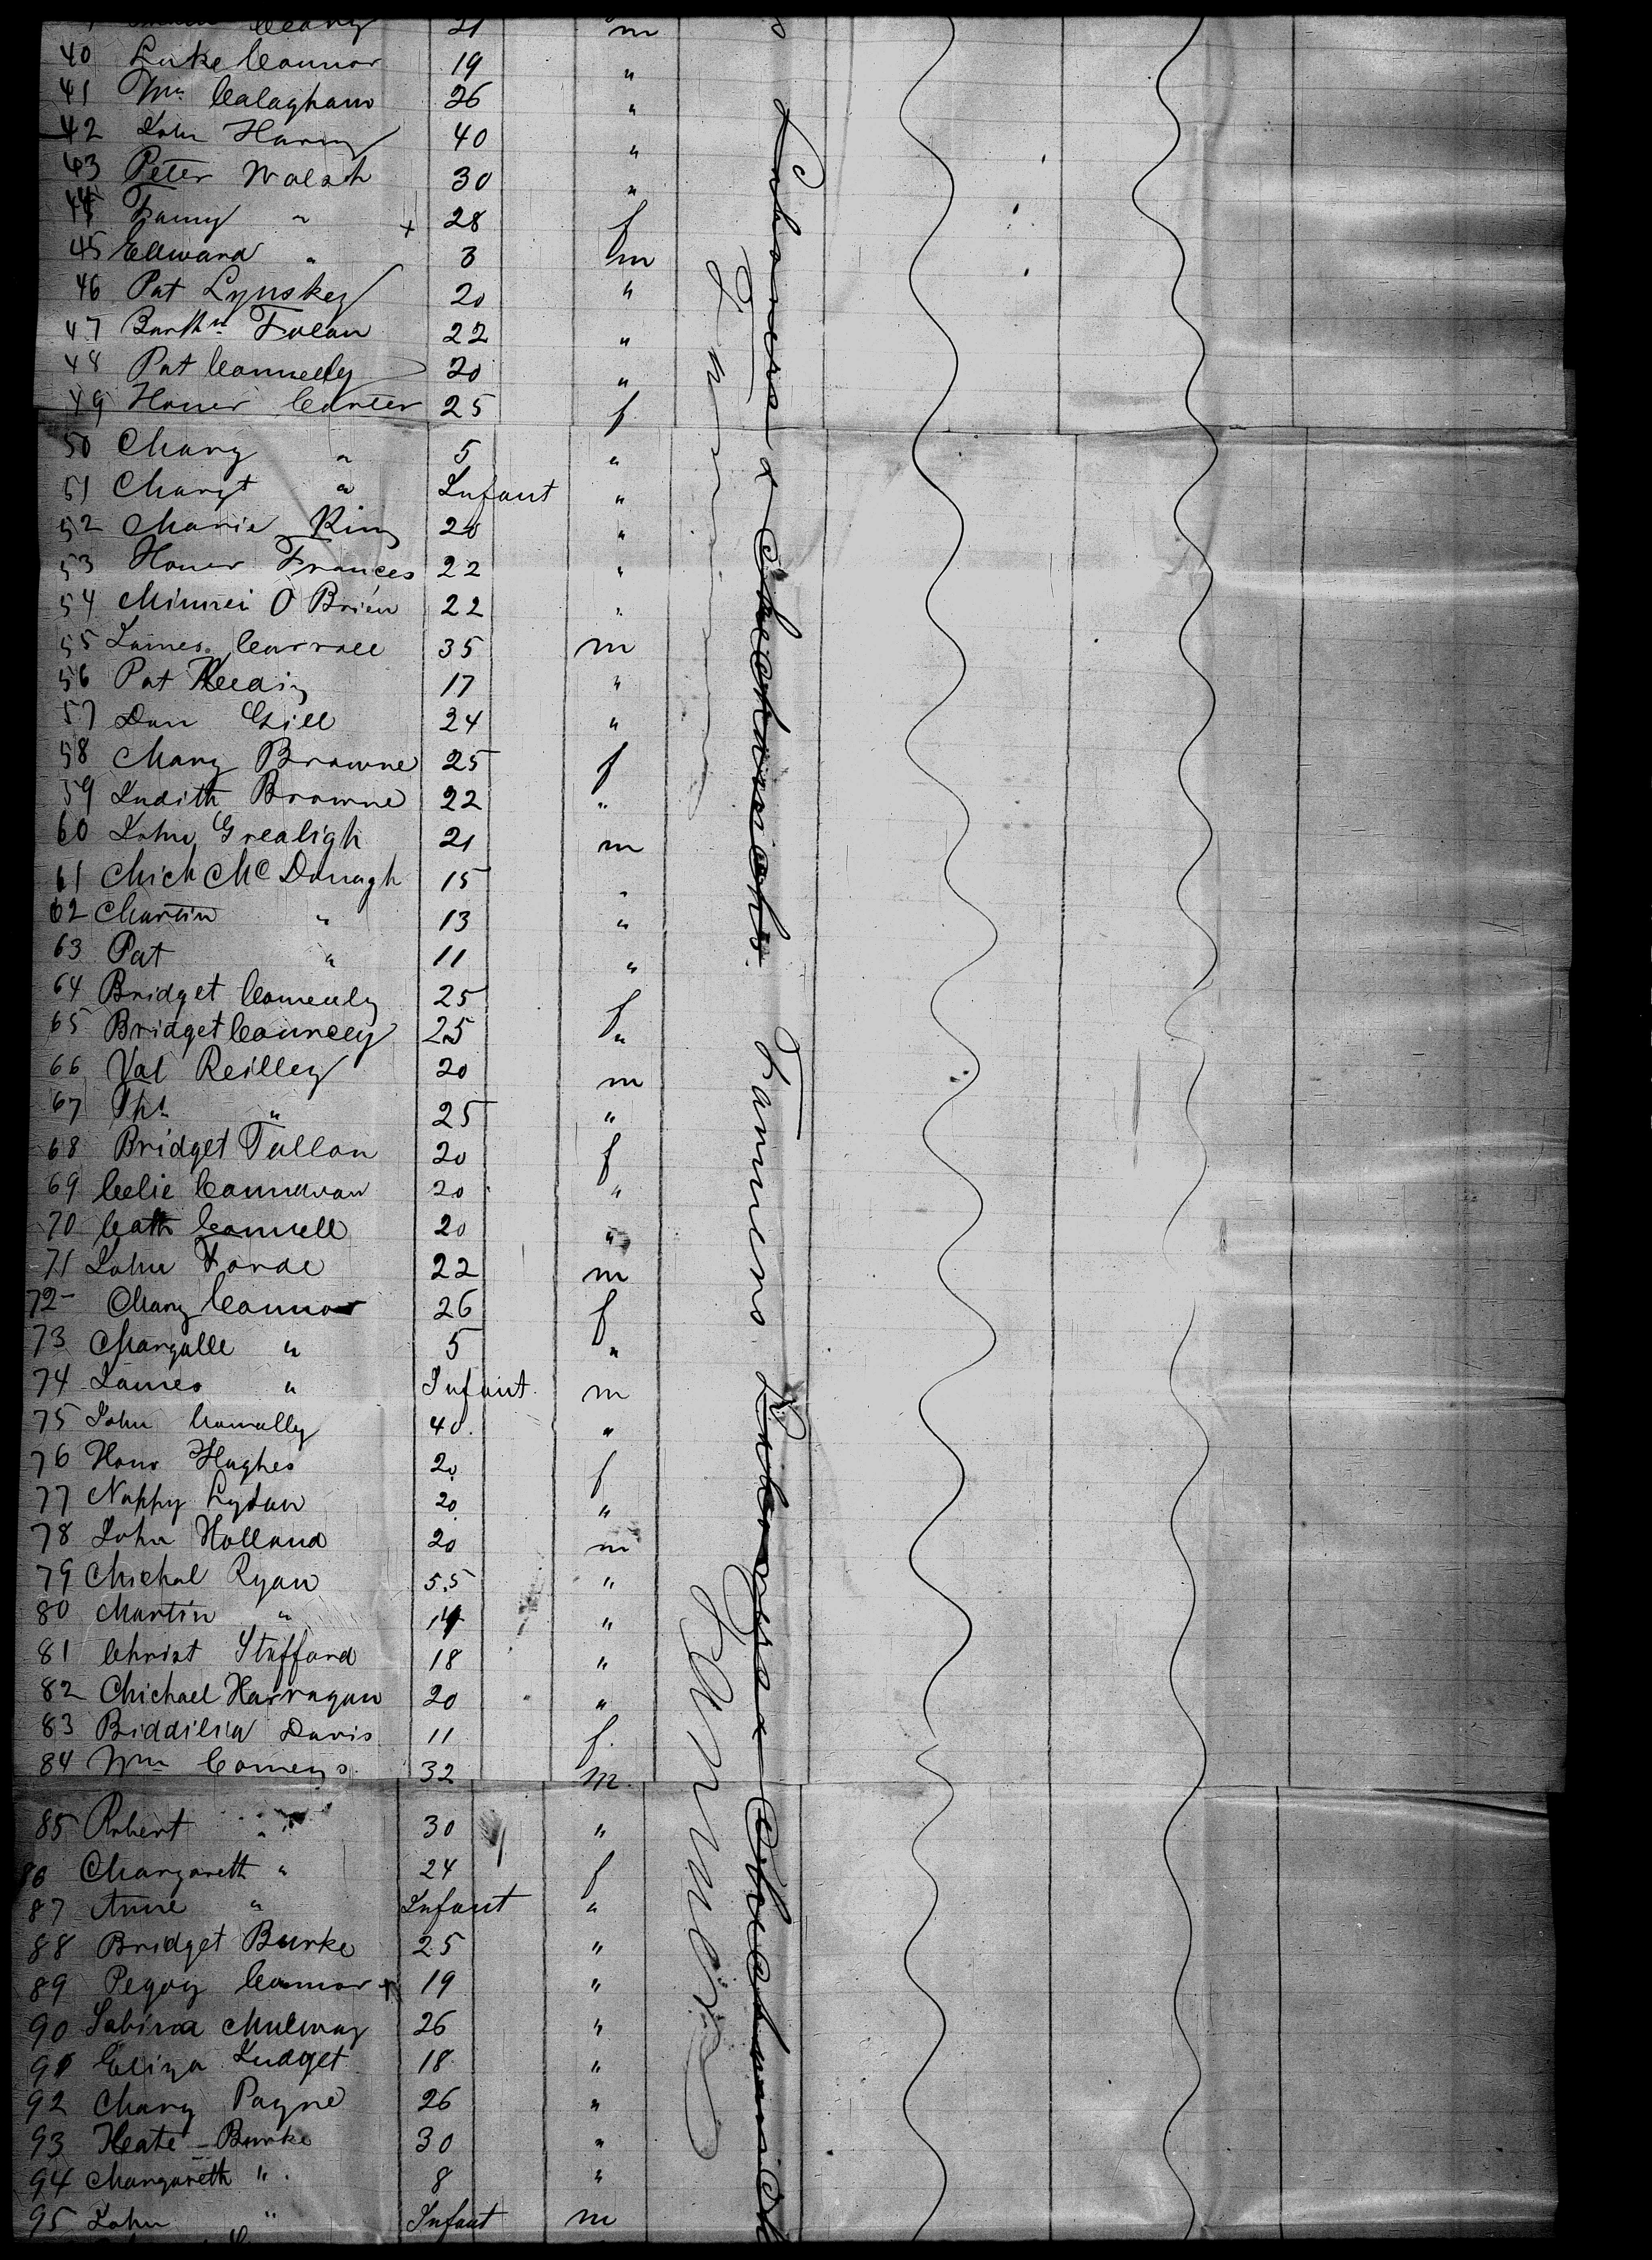 21 m
40 Luke Connor 19 "
41 Wm Calaghan 26 "
42 John Haring 40 "
43 Peter Walsh 30 "
44 Fanny " + 28 f
45 Edward " 3 m
46 Pat Lynskey 20 "
47 Barthw Folan 22 "
48 Pat Connelly 20 "
49 Honer Carter 25 f
50 Mary " 5 "
51 Margt " Infant "
52 Marie King 20 "
53 Honer Frances 22 "
54 Minnei O Brien 22 "
55 James Carroll 35 m
56 Pat 17 "
57 Dan Gill 24 "
58 Mary Browne 25 f
59 Judith Browne 22 "
60 John Grealigh 21 m
61 Mich Mc Donagh 15 "
62 Martin " 13 "
63 Pat " 11 "
64 Bridget 25 f
65 Bridget 25 "
66 Val Reilley 20 m
67 Ths " 25 "
68 Bridget Fallon 20 f
69 Celie 20 "
70 Cath Connell 20 "
71 John Forde 22 m
72 Mary Connor 26 f
73 Margalle " 5 "
74 James " Infant m
75 John 40 "
76 Honr Hughes 20 f
77 Nappy Lydan 20 "
78 John Holland 20 m
79 Michal Ryan 55 "
80 Martin " 14 "
81 Christ Stafford 18 "
82 Michael Harragan 20 "
83 Biddilia Davis 11 f
84 Wm Comeys 32 m
85 Robert " 30 "
86 Margareth " 24 f
87 Anne " Infant "
88 Bridget Burke 25 "
89 Peggy Connor + 19 "
90 Sabina 26 "
91 Eliza Judget 18 "
92 Mary Payne 26 "
93 Keate Burke 30 "
94 Margareth " 8 "
95 John " Infant m
Labourers & Mechanichs. Farmers Labourers & Mechanich
Farmers